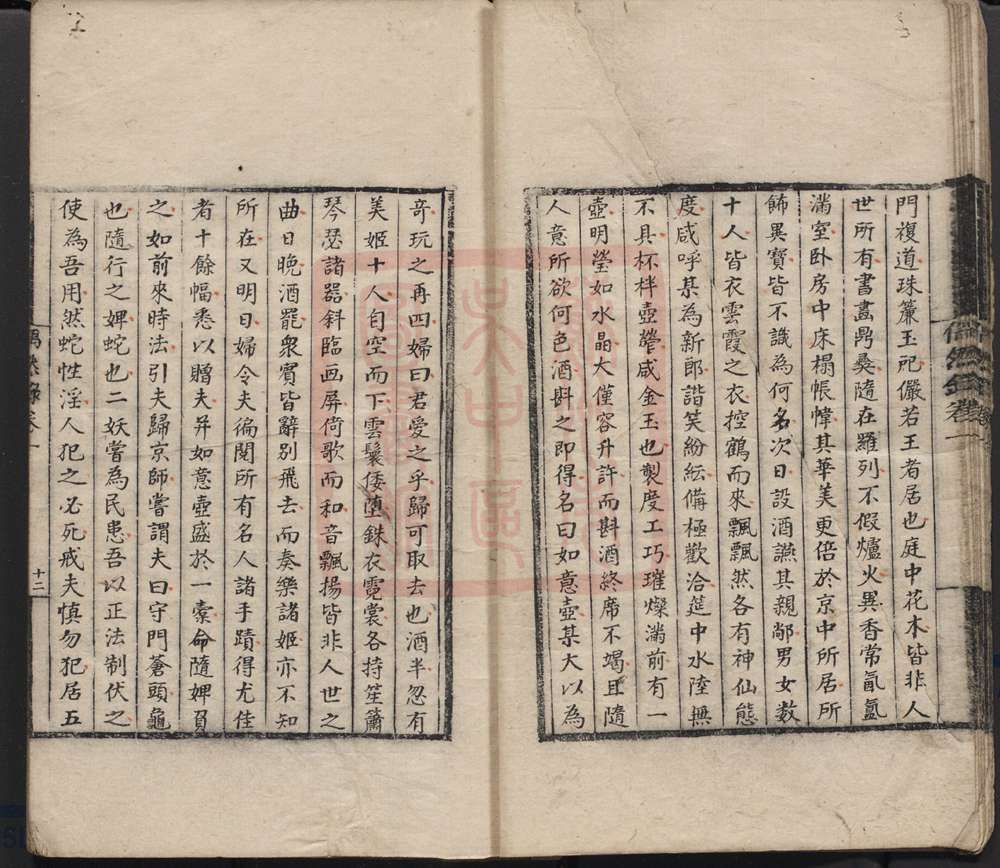 門複道珠簾玉戺儼若王者居也庭中花木皆非人
世所有書畫鼎彝隨在羅列不假爐火異香常氤氳
滿室臥房中床榻帳幃其華美更倍於京中所居所
飾異寶皆不識為何名次日設酒讌其親鄰男女數
十人皆衣雲霞之衣控鶴而來飄飄然各有神仙態
度咸呼某為新郎諧笑紛紜備極歡洽筵中水陸無
不具杯柈壺罍咸金玉也製度工巧璀燦滿前有一
壺明瑩如水晶大僅容升許而斟酒終席不竭且隨
人意所欲何色酒斟之即得名曰如意壺某大以為
奇玩之再四婦曰君愛之乎歸可取去也酒半忽有
美姬十人自空而下雲鬟倭墮銖衣霓裳各持笙簫
琴瑟諸器斜臨画屏倚歌而和音飄揚皆非人世之
曲日晚酒罷衆賓皆辭別飛去而奏樂諸姬亦不知
所在又明日婦令夫徧閱所有名人諸手蹟得尤佳
者十餘幅悉以贈夫并如意壺盛於一橐命隨婢負
之如前來時法引夫歸京師嘗謂夫曰守門蒼頭龜
也隨行之婢蛇也二妖嘗為民患吾以正法制伏之
使為吾用然蛇性淫人犯之必死戒夫慎勿犯居五
偶然錄卷一
十二